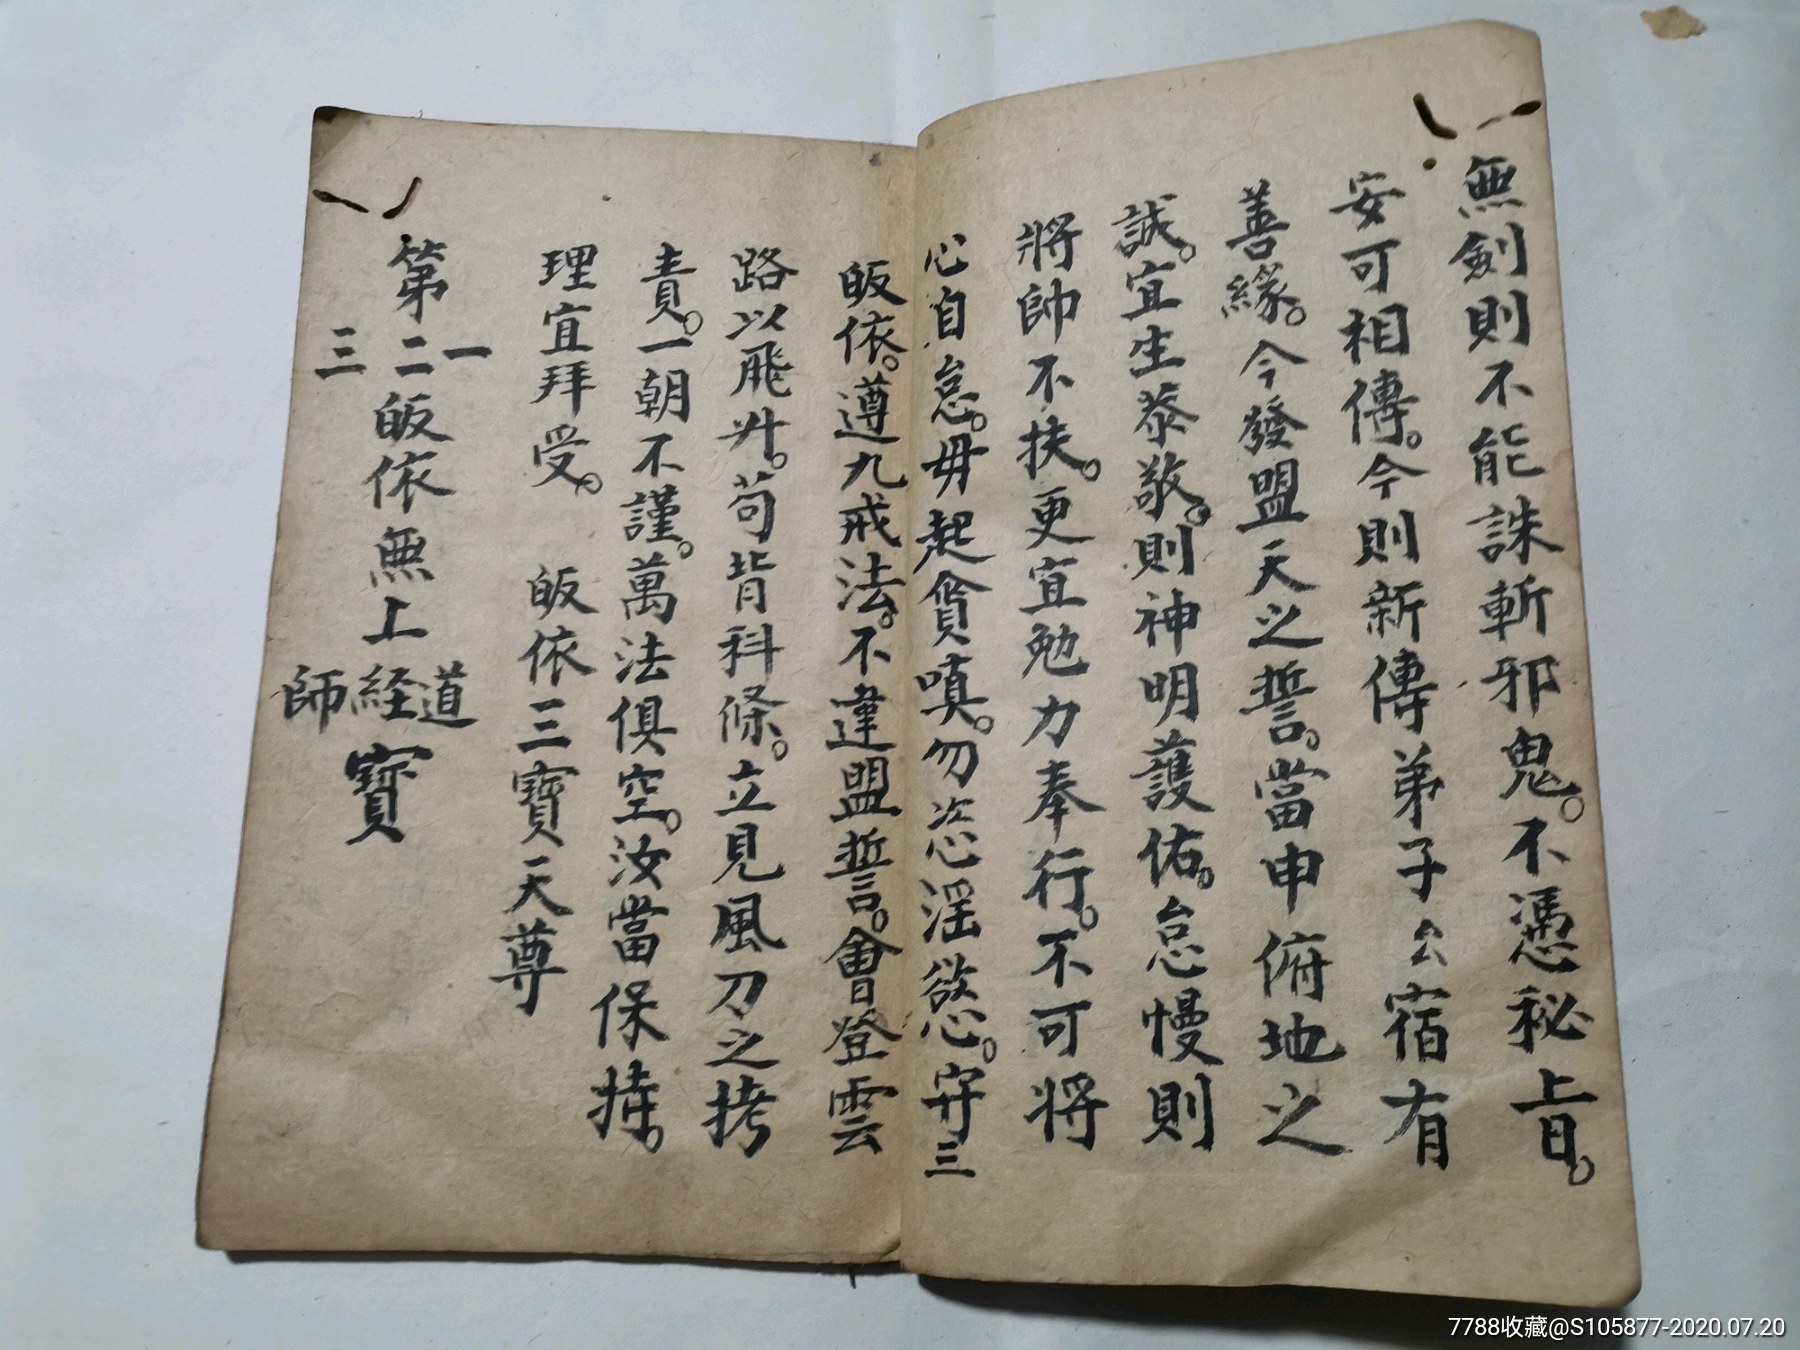 無劍則不能誅斬邪鬼。不憑秘旨。
安可相傳。今則新傳弟子厶厶宿有
善緣。今發盟天之誓。當申俯地之
誠。宜生恭敬。則神明護佑。怠慢則
將帥不扶。更宜勉力奉行。不可將
心自怠。毋起貪嗔。勿恣淫慾。守三
皈依。遵九戒法。不違盟誓。會登雲
路以飛升。苟背科條。立見風刀之拷
責。一朝不謹。萬法俱空。汝當保持。
理宜拜受。 皈依三寶天尊
第一二三皈依無上道経師寶
7788收藏@S105877-2020.07.20